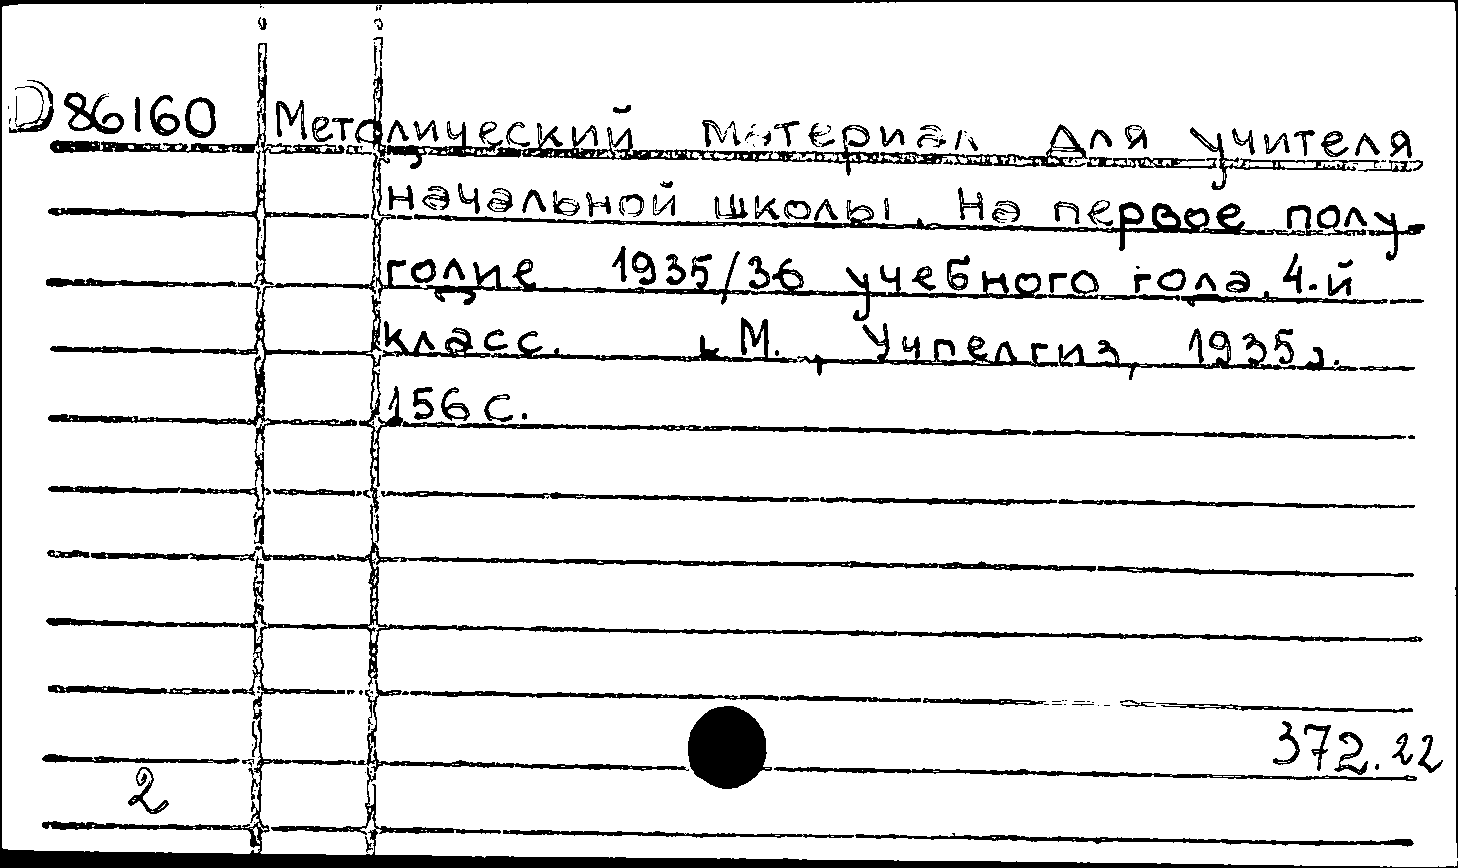 D 86160 Методический материал для учителя
начальной школы. На первое полу-
годие 1935/36 учебного года. 4-й
класс. М., Учпедгиз, 1935 г.
156 с.
372.22
2